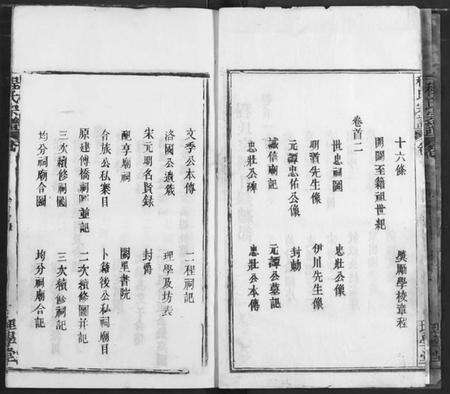 十六條 獎勵學校章程
開闢至績祖世紀
卷首二
世忠祠圖 忠壯公像
明道先生像 伊川先生像
元譚忠佑公像 封勅
誠信廟記 元譚公墓記
忠壯公碑 忠壯公本傳
文季公本傳 二程祠記
洛國公遺蔵 理學及坊表
宋元明名賢錄 封爵
配享廟祠 闕里書院
合族公私業目 卜績後公私祠廟目
原建傅橋祠圖並記 二次續修圖并記
三次續修祠圖 三次續修祠記
均分祠廟合圖 均分祠廟合記
程氏宗譜
理學堂